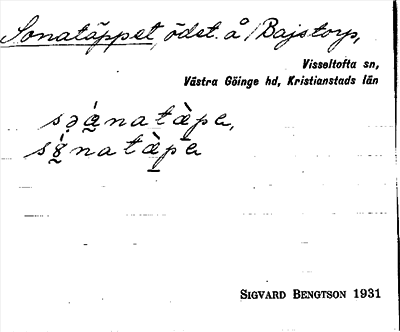 Sonatäppet, ödet. å Bajstorp,
Visseltofta sn,
Västra Göinge hd, Kristianstads län
SIGVARD BENGTSON 1931